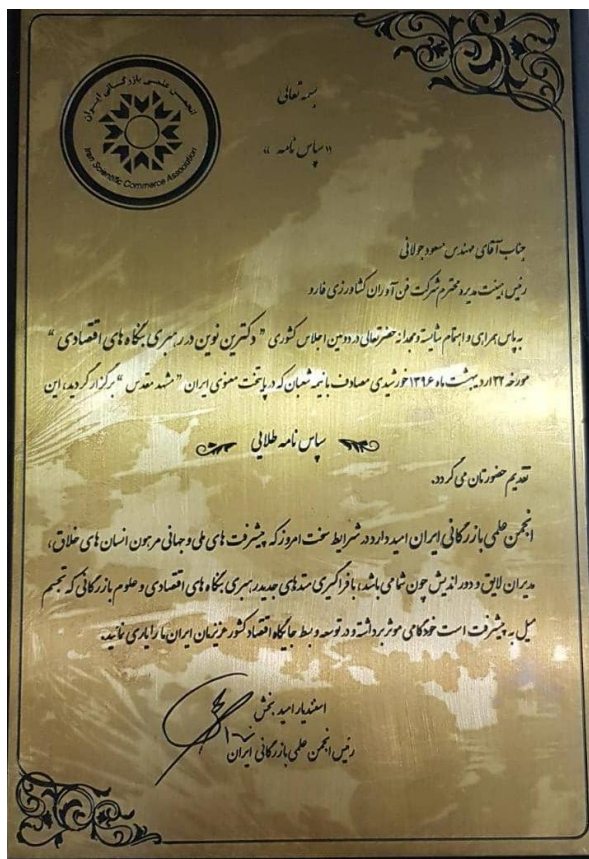 انجمن علمی بازرگانی ایران
Iran Scientific Commerce Association
بسمه تعالی
«سپاس نامه»
جناب آقای مهندس مسعود جولانی
رئیس هیئت مدیره محترم شرکت فن آوران کشاورزی فارو
به پاس همراهی و اهتمام شایسته و مجدانه حضرتعالی در دومین اجلاس کشوری " دکترین نوین در رهبری بنگاه های اقتصادی "
مورخه ۲۲ اردیبهشت ماه ۱۳۹۶ خورشیدی مصادف با نیمه شعبان که در پایتخت معنوی ایران " مشهد مقدس " برگزار گردید، این
سپاس نامه طلایی
تقدیم حضورتان می گردد.
انجمن علمی بازرگانی ایران امید دارد در شرایط سخت امروز که پیشرفت های ملی و جهانی مرهون انسان های خلاق ،
مدیران لایق و دور اندیش چون شما می باشد، با فراگیری متدهای جدید رهبری بنگاه های اقتصادی و علوم بازرگانی که تجسم
میل به پیشرفت است خود گامی موثر برداشته و در توسعه و بسط جایگاه اقتصاد کشور عزیزمان ایران ما را یاری نمائید.
اسفندیار امید بخش
رئیس انجمن علمی بازرگانی ایران